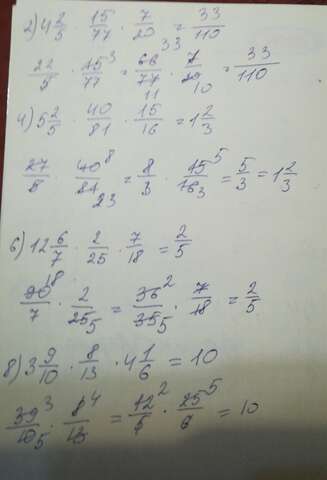 2) 4 2/5 · 15/77 · 7/20 = 33/110
22/5 · 15³/77 = 66³³/77₁₁ · 7/20₁₀ = 33/110
4) 5 2/5 · 40/81 · 15/16 = 1 2/3
27/5 · 40⁸/81₃ = 8/3 · 15⁵/16₃ = 5/3 = 1 2/3
6) 12 6/7 · 2/25 · 7/18 = 2/5
90¹⁸/7 · 2/25₅ = 36²/35₅ · 7/18 = 2/5
8) 3 9/10 · 8/13 · 4 1/6 = 10
39³/10₅ · 8⁴/13 = 12²/5 · 25⁵/6 = 10